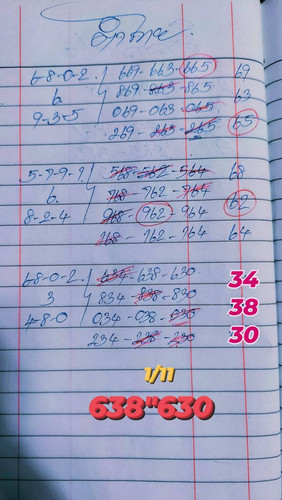 6-8-0-2 / 669-663-665 69
6 869-863-865 63
9-3-5 069-063-065 65
269-263-265
5-7-9-1 / 568-562-564 68
6 768-762-764 62
8-2-4 968-962-964 64
168-162-164
6-8-0-2 / 634-638-630 34
3 834-838-830 38
4-8-0 034-038-030 30
234-238-230
1/11
638"630